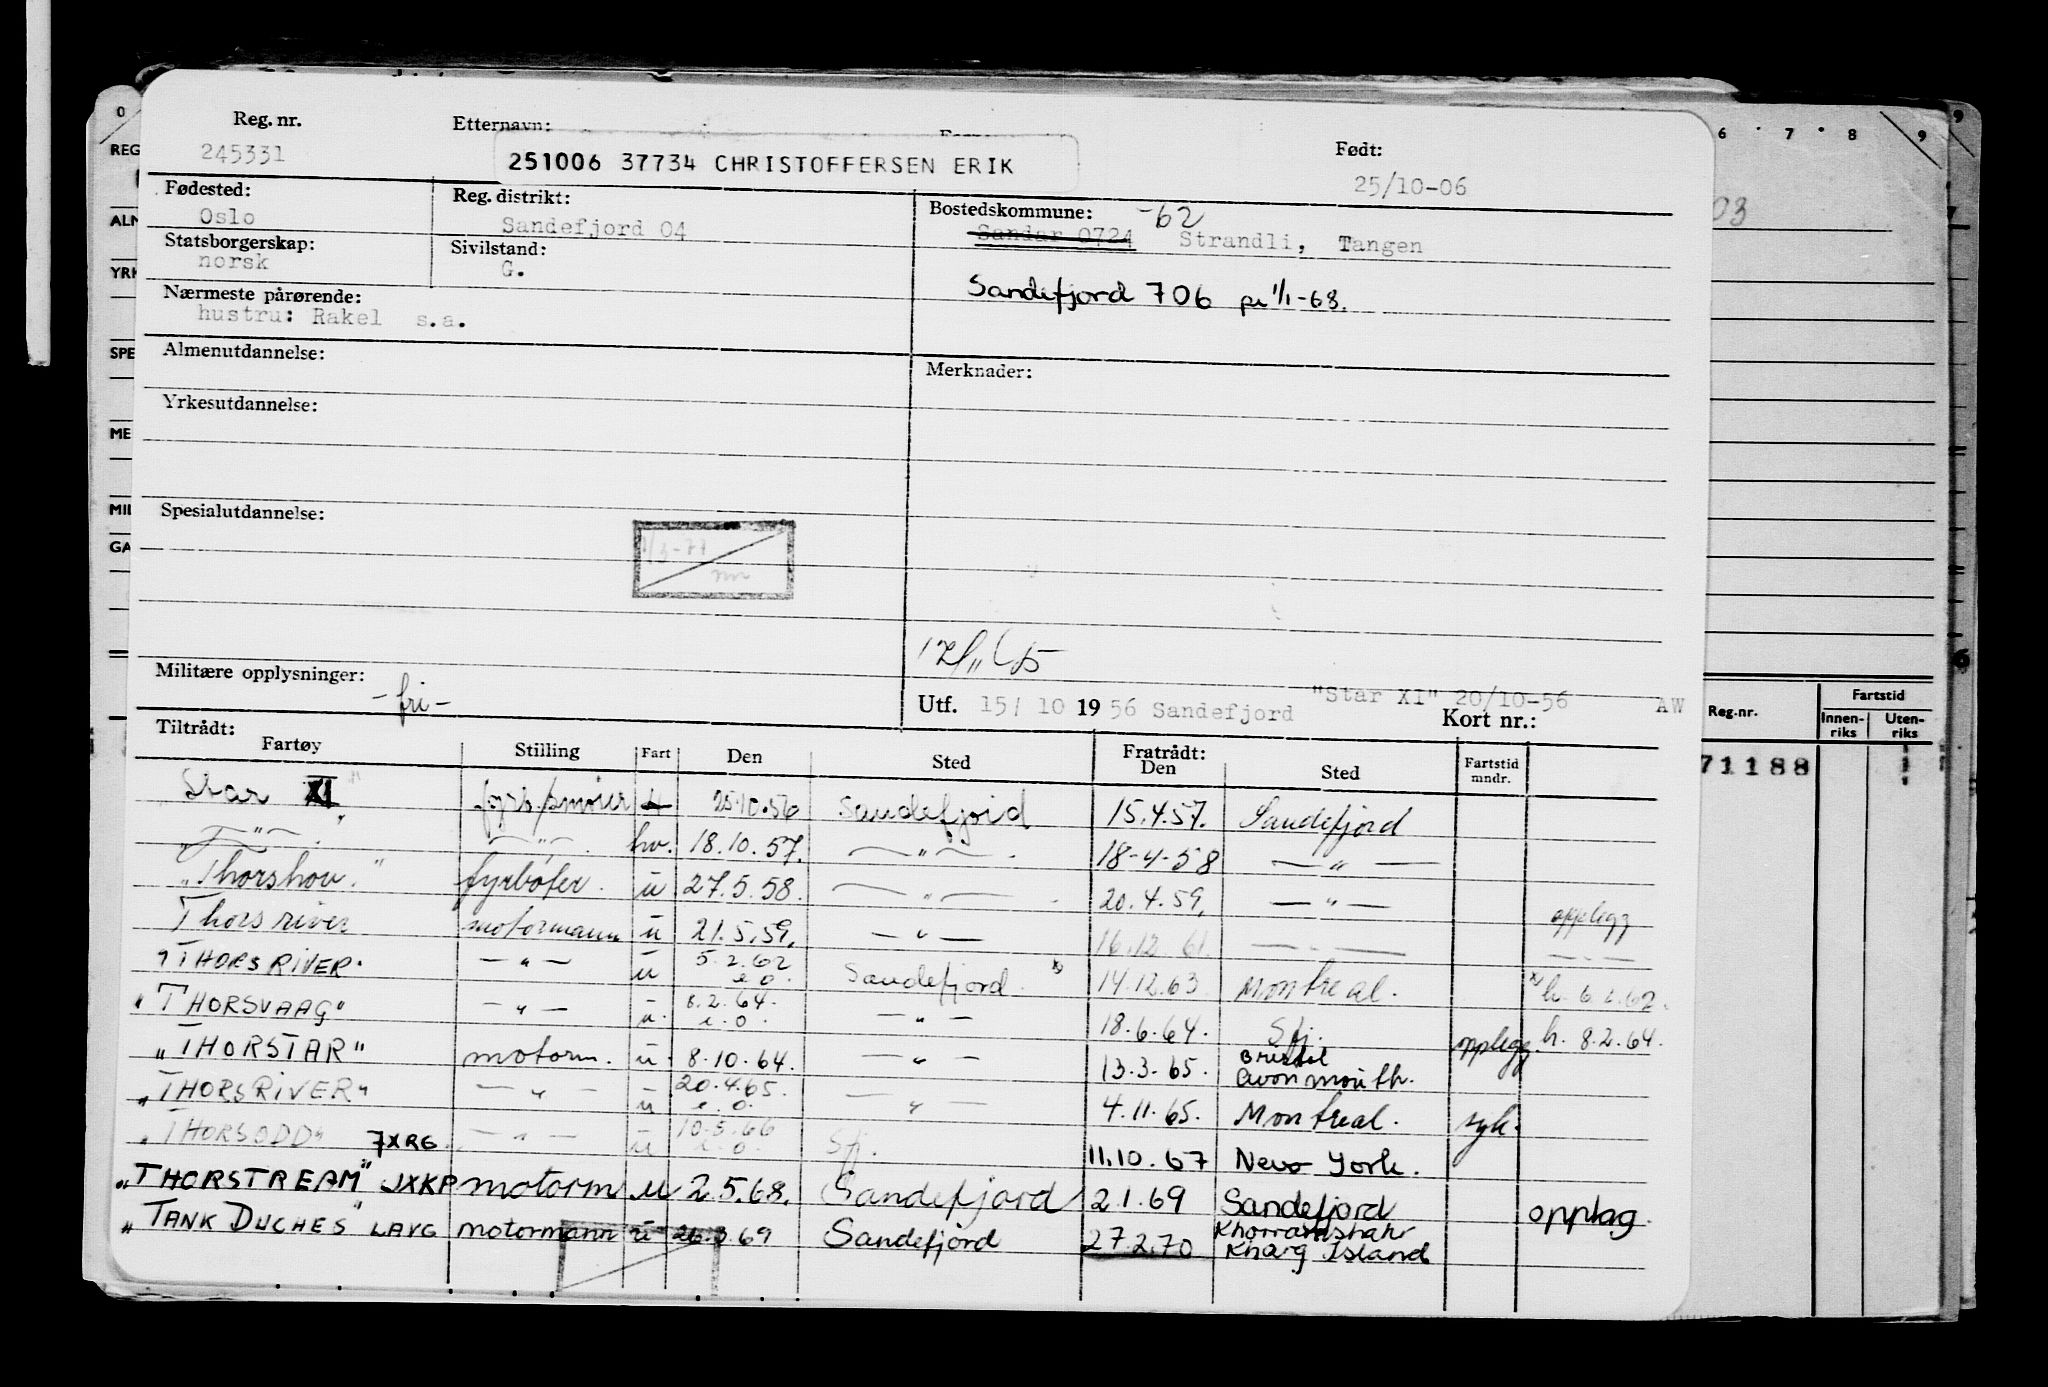 Reg. nr. Etternavn: Født:
245331 251006 37734 CHRISTOFFERSEN ERIK 25/10-06
Fødested: Reg. distrikt: Bostedskommune: -62
Oslo Sandefjord 04 Sandar 0724 Strandli, Tangen
Statsborgerskap: Sivilstand:
norsk G.
Sandefjord 706 pr 1/1-68.
Nærmeste pårørende:
hustru: Rakel s.a.
Almenutdannelse: Merknader:
Yrkesutdannelse:
Spesialutdannelse:
1/3-77
Militære opplysninger:
-fri-
"Star XI" 20/10-56 AW
Utf. 15/ 10 1956 Sandefjord Kort nr.:
Tiltrådt: Fratrådt:
Fartøy Stilling Fart Den Sted Den Sted Fartstid mndr.
Star XI 25.10.56 Sandefjord 15.4.57. Sandefjord
—"— —"— hv. 18.10.57. —"— 18-4-58 —"—
"Thorshov." fyrbøter. u 27.5.58. —"— 20.4.59. —"— opplegg
Thorsriver motormann u 21.5.59. —"— 16.12.61. —"— —"—
"THORSRIVER" —"— u 5.2.62 e.o. Sandefjord x) 14.12.63 Montreal. x) h. 6.2.62.
"THORSVAAG" —"— u. 8.2.64. e.o. —"— 18.6.64. Sfj. opplegg. h. 8.2.64.
"THORSTAR" motorm. u 8.10.64. —"— 13.3.65. Bristol Avonmouth.
"THORSRIVER" —"— u 20.4.65. e.o. —"— 4.11.65. Montreal. syk.
"THORSODD" 7XRG —"— u 10.5.66 e.o. Sfj. 11.10.67 New York.
"THORSTREAM" JXKP motorm u 2.5.68. Sandefjord 2.1.69 Sandefjord opplag.
"TANK DUCHES" LAVG motormann u 26.3.69 Sandefjord 27.2.70 Khorramshahr Kharg Island
0 6 7 8 9
REG
ALM
YRK
SPE
ME
MIL
GA
03
Reg.nr. Fartstid
Innenriks Utenriks
71188
6